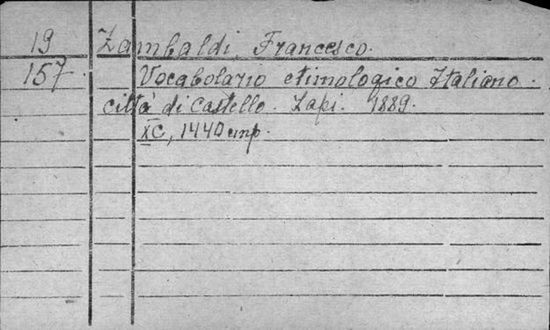 19 Zambaldi, Francesco.
157. Vocabolario etimologico Italiano.
città di Castello. Lapi. 1889.
XC, 1440